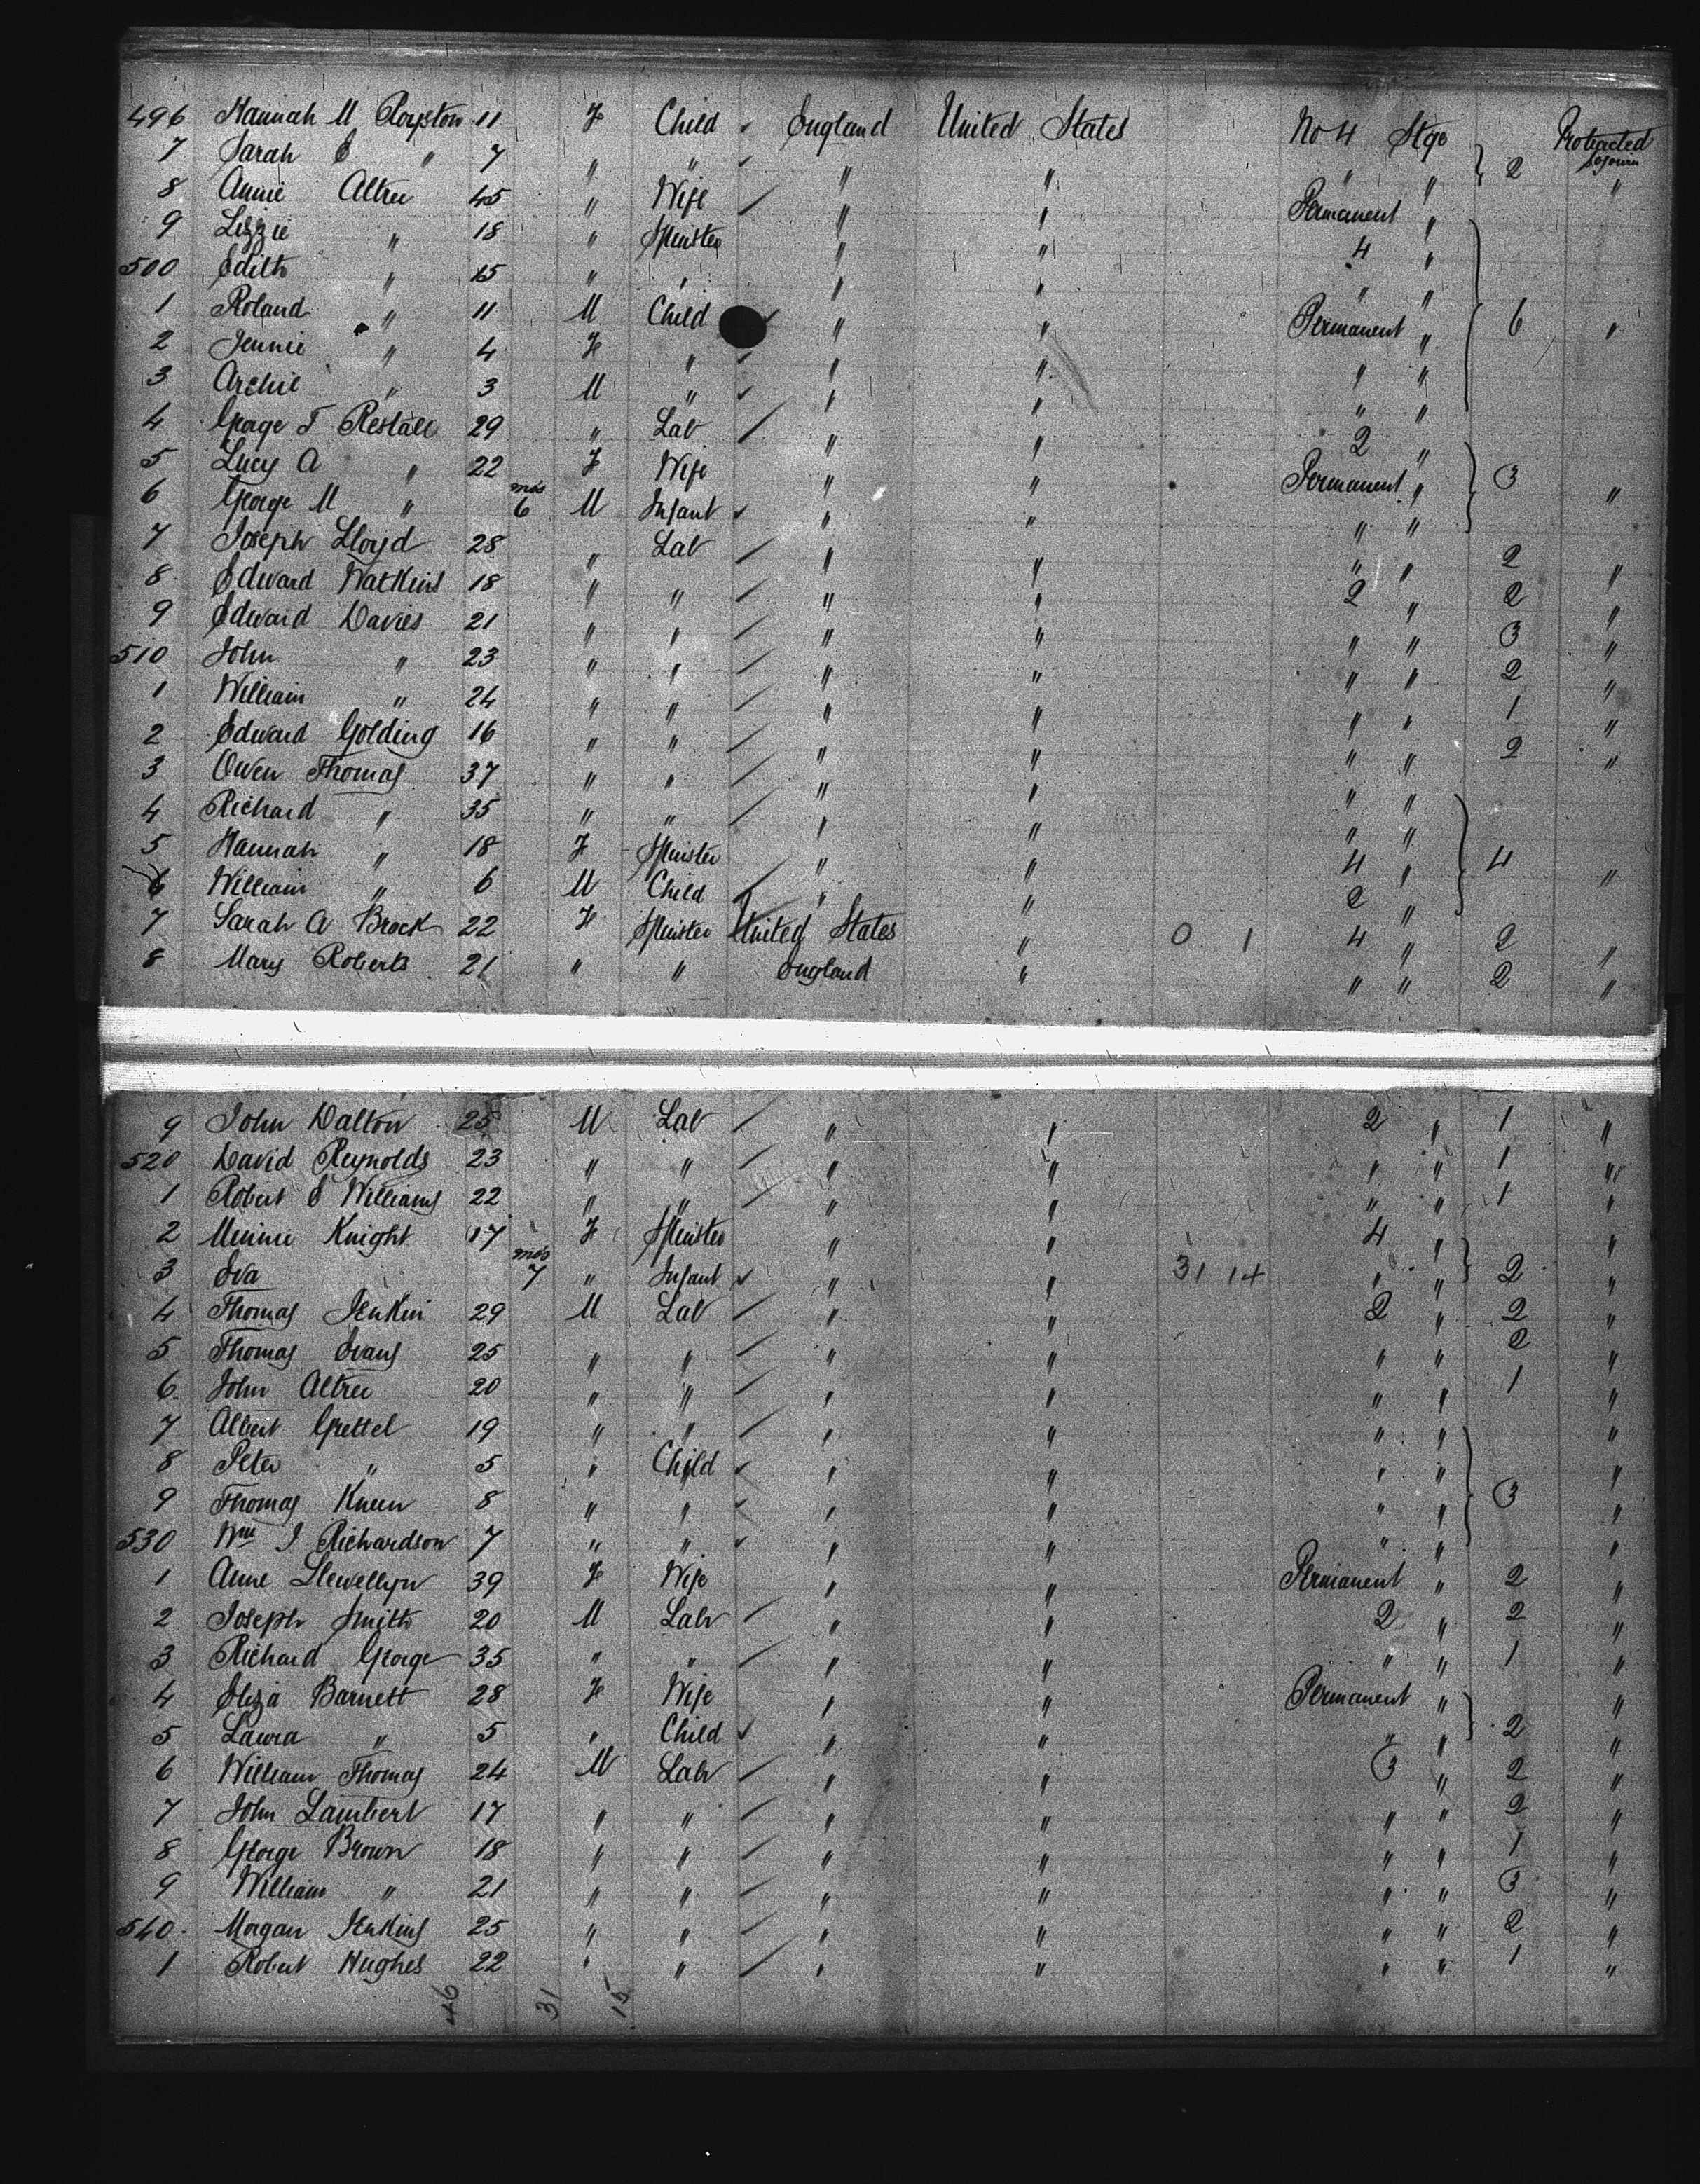 496 Hannah M Royston 11 F Child England United States No 4 Stge Protracted Sojourn
7 Sarah E " 7 " " " " " " 2 "
8 Annie Altree 45 " Wife " " Permanent "
9 Lizzie " 18 " Spinster " " 4 "
500 Edith " 15 " " " " " "
1 Roland " 11 M Child " " Permanent " 6 "
2 Jennie " 4 F " " " " "
3 Archie " 3 M " " " " "
4 George T Restall 29 " Lab " " 2 "
5 Lucy A " 22 F Wife " " Permanent " 3 "
6 George M " mos 6 M Infant " " " "
7 Joseph Lloyd 28 " Lab " " " " 2 "
8 Edward Watkins 18 " " " " 2 " 2 "
9 Edward Davies 21 " " " " " " 3 "
510 John " 23 " " " " " " 2 "
1 William " 24 " " " " " " 1 "
2 Edward Golding 16 " " " " " " 2 "
3 Owen Thomas 37 " " " " " "
4 Richard " 35 " " " " " "
5 Hannah " 18 F Spinster " " 4 " 4 "
6 William " 6 M Child " " 2 "
7 Sarah A Brock 22 F Spinster United States " 0 1 4 " 2 "
8 Mary Roberts 21 " " England " " " 2 "
9 John Dalton 25 M Lab " " 2 " 1 "
520 David Reynolds 23 " " " " " " 1 "
1 Robert E Williams 22 " " " " " " 1 "
2 Minnie Knight 17 F Spinster " " 4 " "
3 Eva mos 7 " Infant " " 31 14 " " 2 "
4 Thomas Jenkin 29 M Lab " " 2 " 2 "
5 Thomas Evans 25 " " " " " " 2 "
6 John Altree 20 " " " " " " 1 "
7 Albert Grettel 19 " " " " " " "
8 Peter " 5 " Child " " " " "
9 Thomas Kneen 8 " " " " " " 3 "
530 Wm J Richardson 7 " " " " " " "
1 Anne Llewellyn 39 F Wife " " Permanent " 2 "
2 Joseph Smith 20 M Labr " " 2 " 2 "
3 Richard George 35 " " " " " " 1 "
4 Eliza Barnett 28 F Wife " " Permanent " "
5 Laura " 5 " Child " " " " 2 "
6 William Thomas 24 M Labr " " 3 " 2 "
7 John Lambert 17 " " " " " " 2 "
8 George Brown 18 " " " " " " 1 "
9 William " 21 " " " " " " 3 "
540 Morgan Jenkins 25 " " " " " " 2 "
1 Robert Hughes 22 " " " " " " 1 "
46 31 15